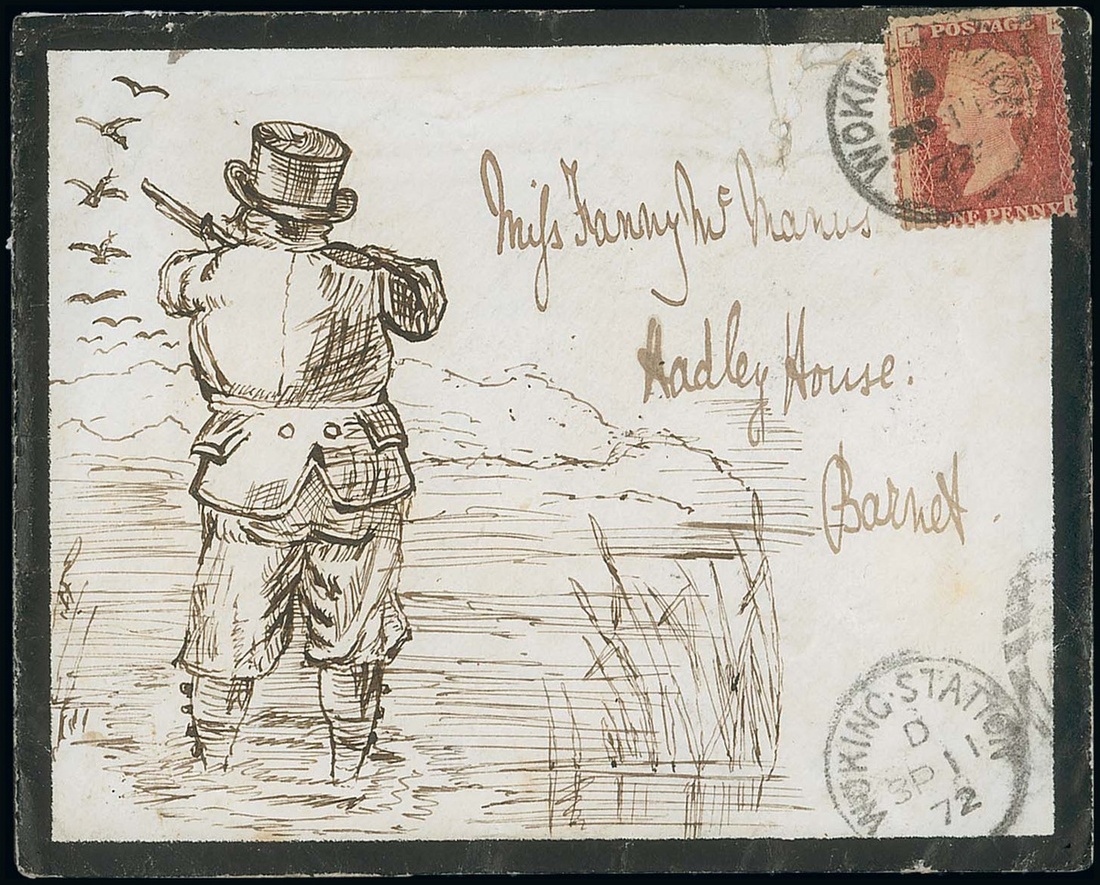 L POSTAGE K
ONE PENNY
WOKING STATION
72
Miss Fanny Mc Manus
Hadley House.
Barnet.
WOKING·STATION
D
SP 11
72